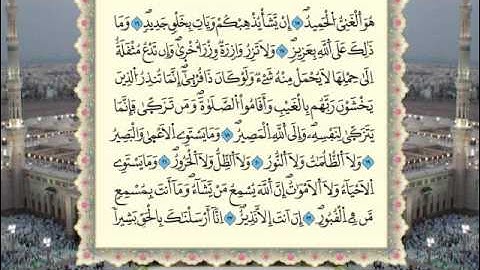 هُوَ الْغَنِيُّ الْحَمِيدُ ۝١٥ اِنْ يَشَأْ يُذْهِبْكُمْ وَيَأْتِ بِخَلْقٍ جَدِيدٍ ۝١٦ وَمَا
ذٰلِكَ عَلَى اللّٰهِ بِعَزِيزٍ ۝١٧ وَلَا تَزِرُ وَازِرَةٌ وِزْرَ اُخْرٰى وَاِنْ تَدْعُ مُثْقَلَةٌ
اِلٰى حِمْلِهَا لَا يُحْمَلْ مِنْهُ شَيْءٌ وَلَوْ كَانَ ذَا قُرْبٰى اِنَّمَا تُنْذِرُ الَّذِينَ
يَخْشَوْنَ رَبَّهُمْ بِالْغَيْبِ وَاَقَامُوا الصَّلٰوةَ وَمَنْ تَزَكّٰى فَاِنَّمَا
يَتَزَكّٰى لِنَفْسِهِ وَاِلَى اللّٰهِ الْمَصِيرُ ۝١٨ وَمَا يَسْتَوِي الْاَعْمٰى وَالْبَصِيرُ
۝١٩ وَلَا الظُّلُمَاتُ وَلَا النُّورُ ۝٢٠ وَلَا الظِّلُّ وَلَا الْحَرُورُ ۝٢١ وَمَا يَسْتَوِي
الْاَحْيَاءُ وَلَا الْاَمْوَاتُ اِنَّ اللّٰهَ يُسْمِعُ مَنْ يَشَاءُ وَمَا اَنْتَ بِمُسْمِعٍ
مَنْ فِي الْقُبُورِ ۝٢٢ اِنْ اَنْتَ اِلَّا نَذِيرٌ ۝٢٣ اِنَّا اَرْسَلْنَاكَ بِالْحَقِّ بَشِيرًا